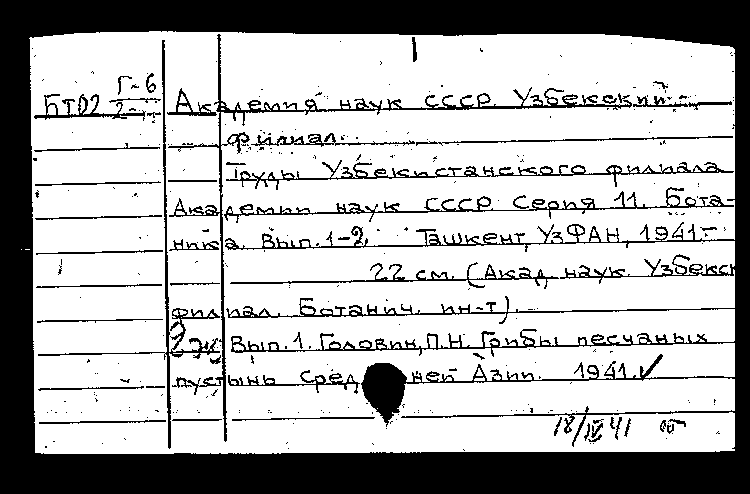 БТ02 Г-6/2- Академия наук СССР. Узбекский
филиал.
Труды Узбекистанского филиала
Академии наук СССР. Серия 11. Бота-
ника. Вып. 1-2. Ташкент, УзФАН, 1941.-
22 см. (Акад. наук. Узбекс
филиал. Ботанич. ин-т).
2 эк Вып. 1. Головин, П.Н. Грибы песчаных
пустынь Средней Азии. 1941. ✓
18/IV 41